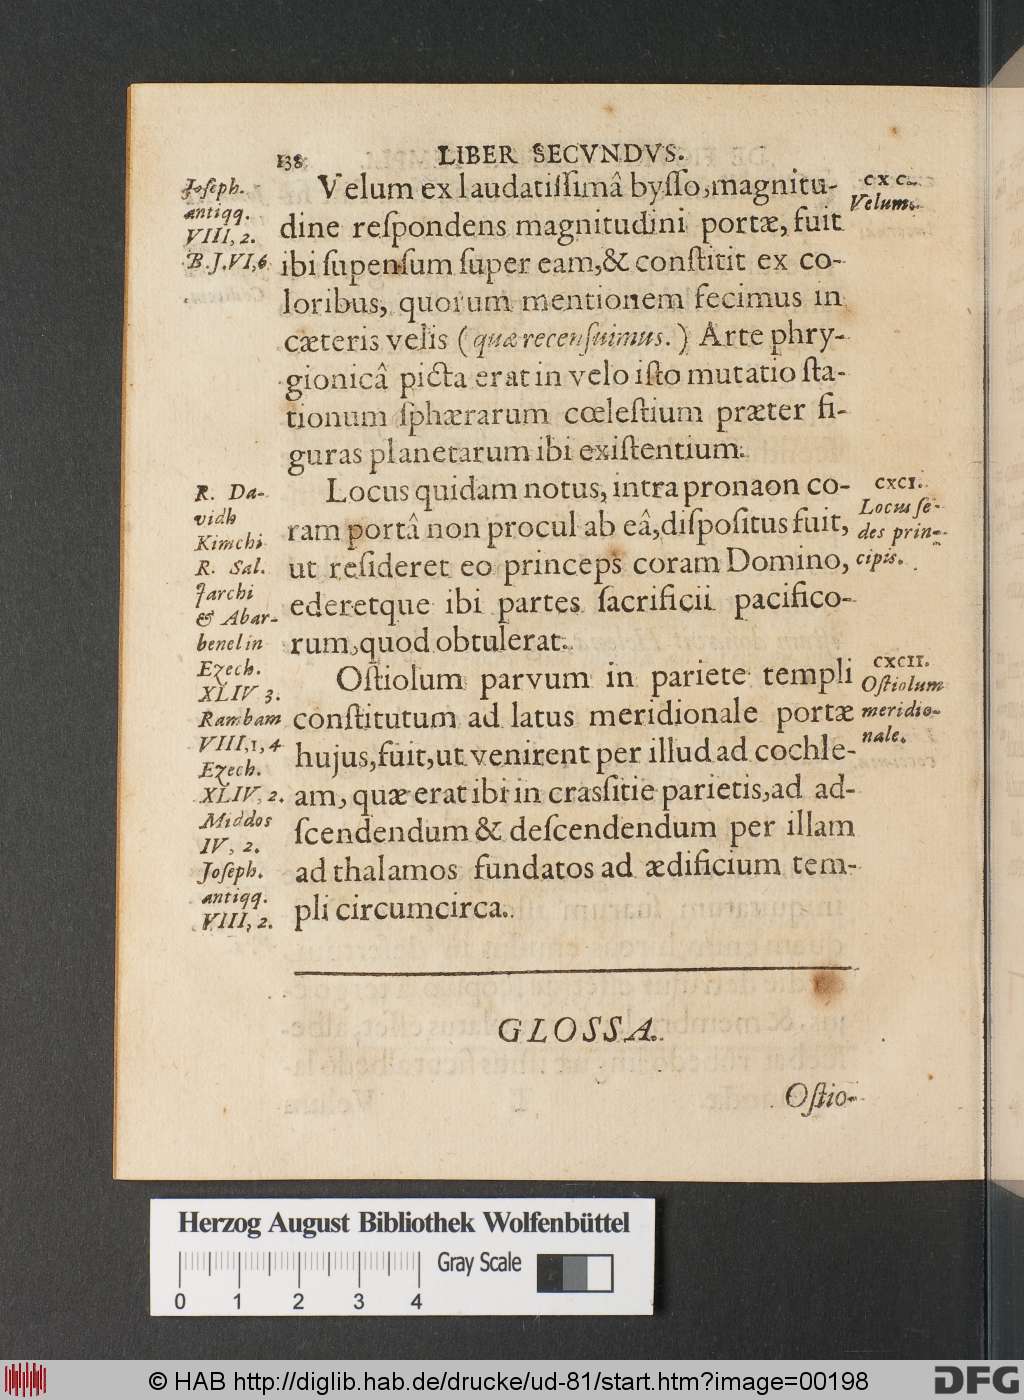 138
LIBER SECVNDVS.
Velum ex laudatiſſimâ byſſo, magnitu-
dine reſpondens magnitudini portæ, fuit
ibi ſupenſum ſuper eam, & conſtitit ex co-
loribus, quorum mentionem fecimus in
cæteris velis ( quæ recenſuimus. ) Arte phry-
gionicâ picta erat in velo iſto mutatio ſta-
tionum ſphærarum cœleſtium præter fi-
guras planetarum ibi exiſtentium.
Locus quidam notus, intra pronaon co-
ram portâ non procul ab eâ, diſpoſitus fuit,
ut reſideret eo princeps coram Domino,
ederetque ibi partes ſacrificii pacifico-
rum, quod obtulerat.
Oſtiolum parvum in pariete templi
conſtitutum ad latus meridionale portæ
hujus, fuit, ut venirent per illud ad cochle-
am, quæ erat ibi in crasſitie parietis, ad ad-
ſcendendum & deſcendendum per illam
ad thalamos fundatos ad ædificium tem-
pli circumcirca.
Joſeph.
antiqq.
VIII, 2.
B. J. VI, 6
R. Da-
vidh
Kimchi
R. Sal.
Jarchi
& Abar-
benel in
Ezech.
XLIV 3.
Rambam
VIII, 1, 4
Ezech.
XLIV, 2.
Middos
IV, 2.
Joſeph.
antiqq.
VIII, 2.
CXC.
Velum.
CXCI.
Locus ſe-
des prin-
cipis.
CXCII.
Oſtiolum
meridio-
nale.
GLOSSA.
Oſtio-
Herzog August Bibliothek Wolfenbüttel
Gray Scale
0 1 2 3 4
© HAB http://diglib.hab.de/drucke/ud-81/start.htm?image=00198
DFG